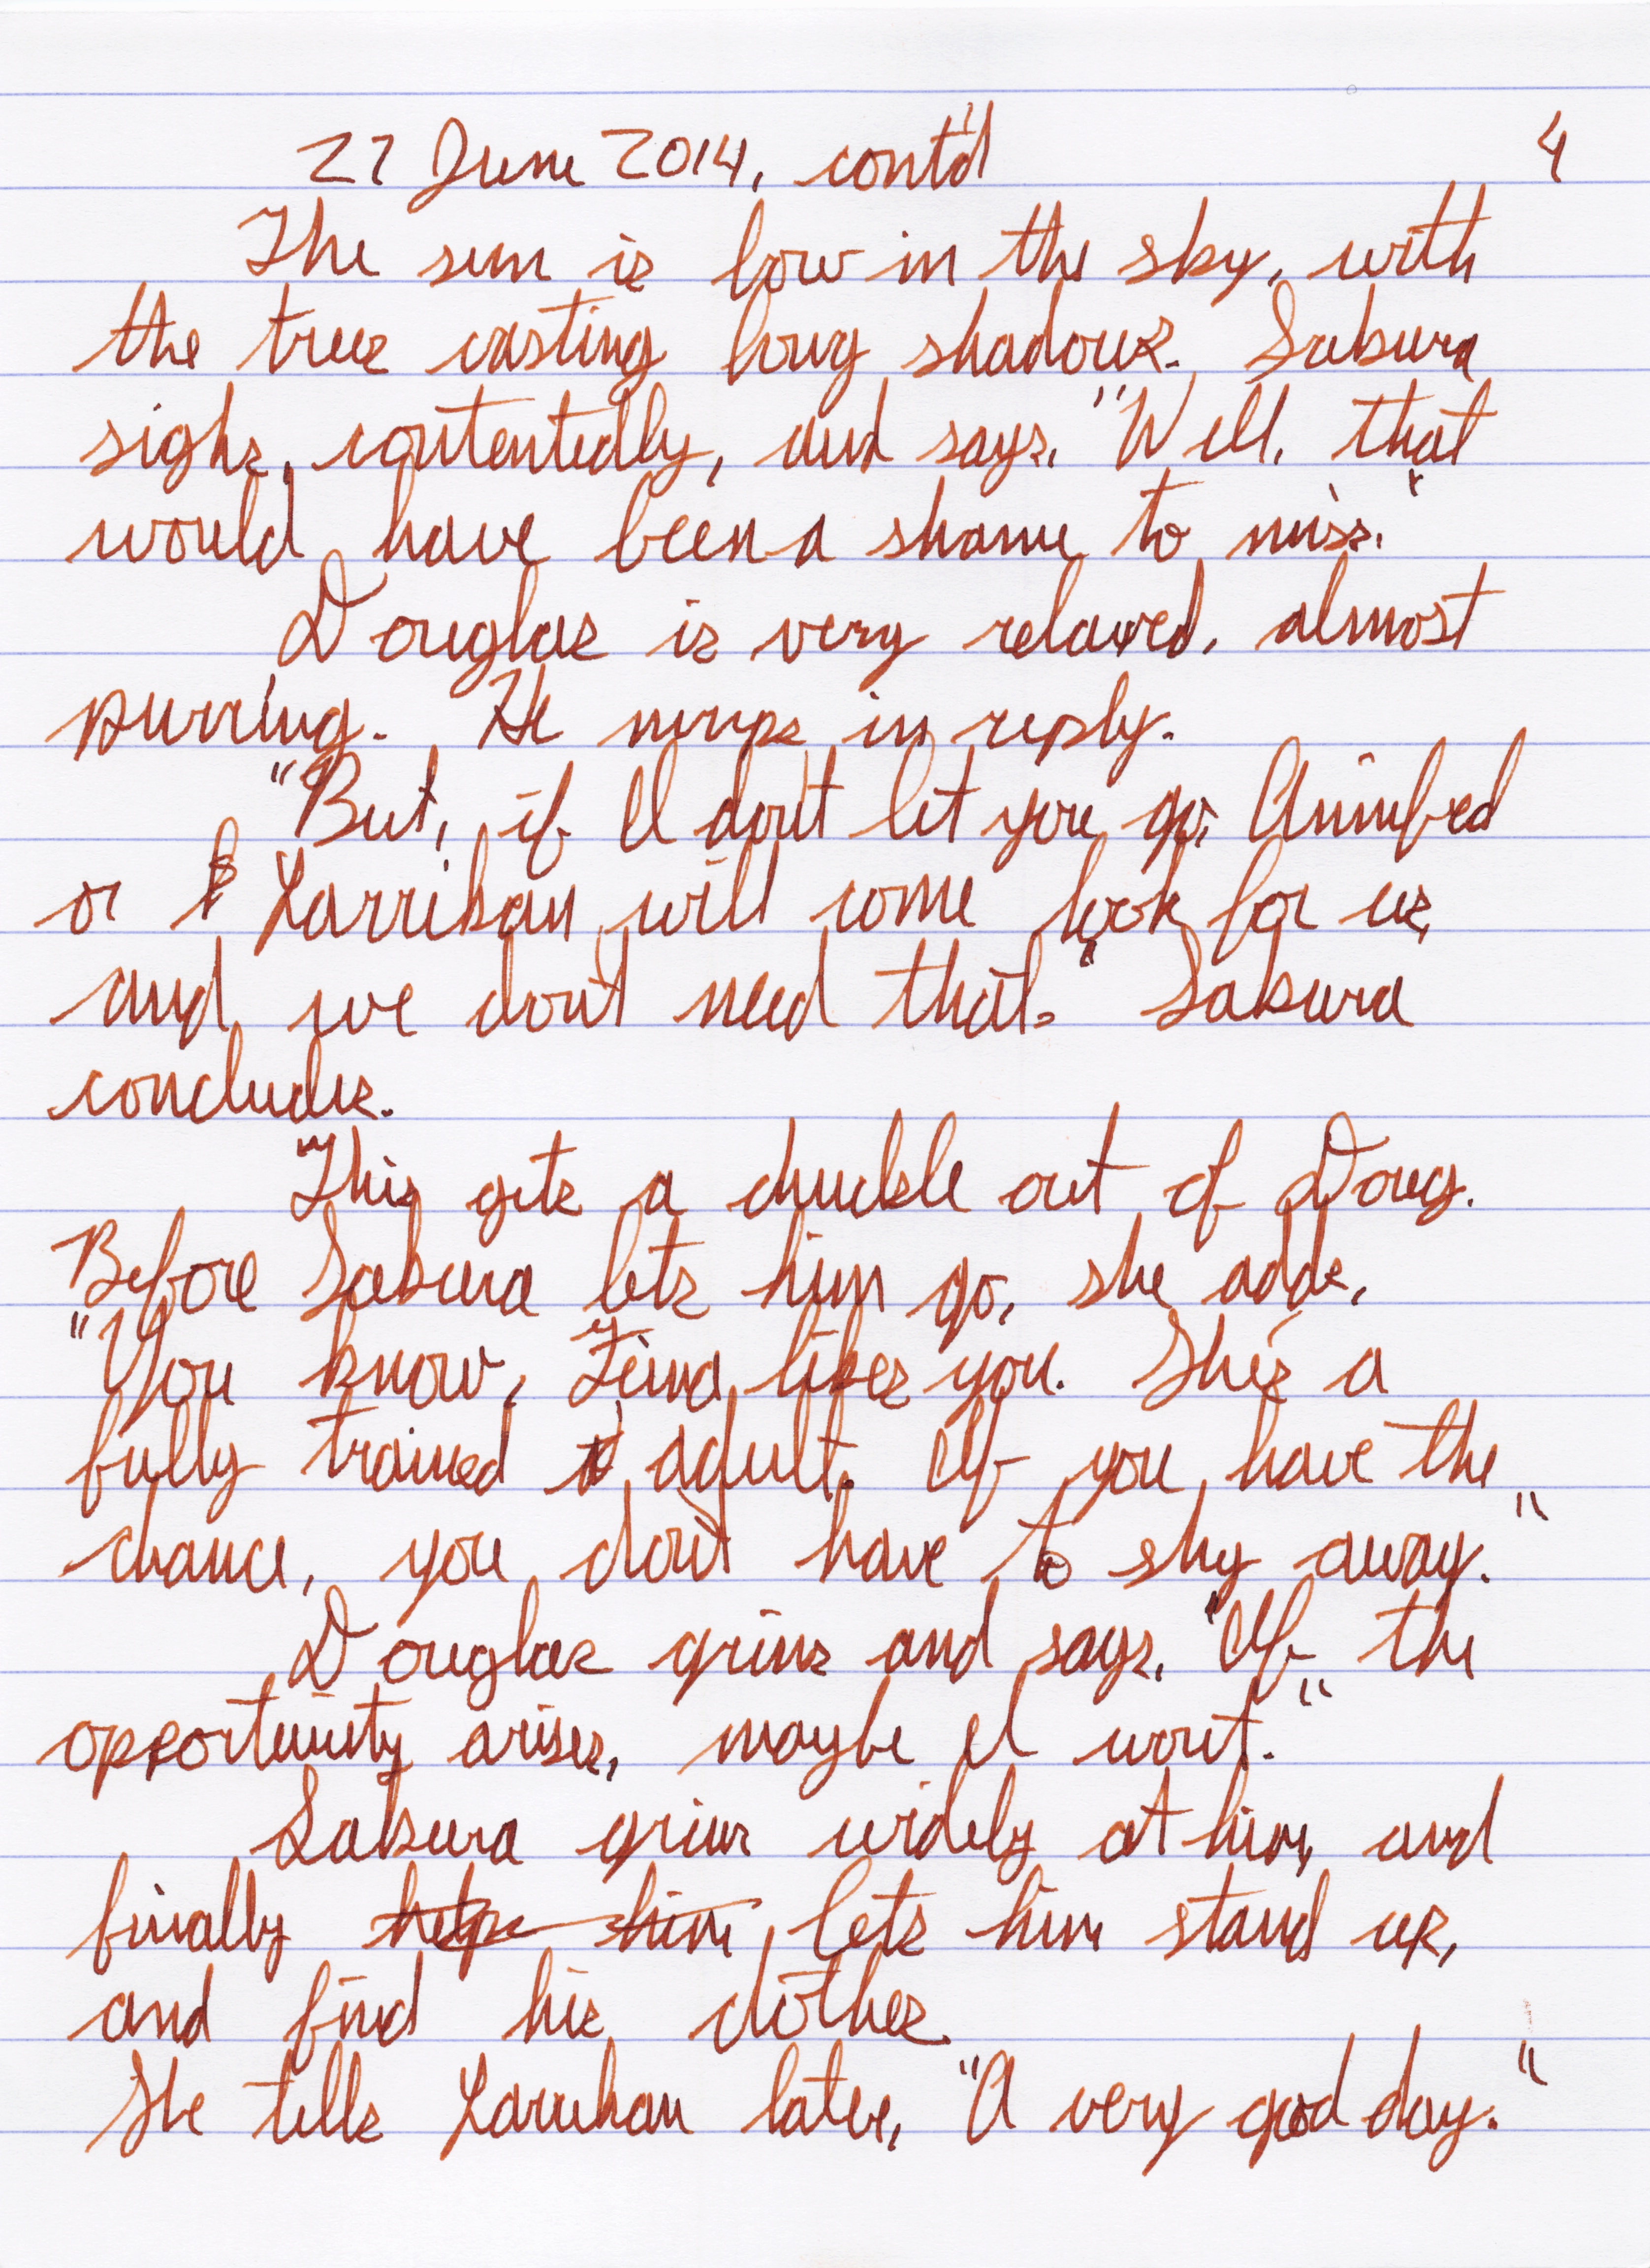 27 June 2014, cont'd 4
The sun is low in the sky, with
the trees casting long shadows. Sakura
sighs, contentedly, and says, "Well, that
would have been a shame to miss."
Douglas is very relaxed, almost
purring. He mrrps in reply.
"But, if I don't let you go,
or Larrikan will come look for us,
and we don't need that." Sakura
concludes.
This gets a chuckle out of Doug.
Before Sakura lets him go, she adds,
"You know, likes you. She's a
fully trained adult. If you have the
chance, you don't have to shy away."
Douglas grins and says, "If the
opportunity arises, maybe I won't."
Sakura grins widely at him, and
finally helps him lets him stand up,
and find his clothes.
She tells Larrikan later, "A very good day."